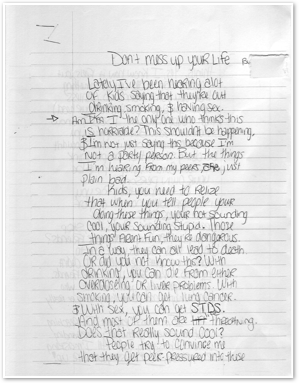 Don't mess up your Life By
Lately I've been hearing alot
of kids saying that they're out
drinking, smoking, & having sex.
Am I the only one who thinks this
is horrible? This shouldn't be happening.
& Im not just saying this because I'm
not a party person. But the things
I'm hearing from my peers, just
plain bad.
Kids, you need to Relize
that when you tell people your
doing these things, your not sounding
cool, your sounding stupid. Those
things Arent Fun, they're dangerous.
In a way, they can all lead to death
or did you not know this? With
drinking, you can die from either
overdosing or liver problems. With
smoking, you can get lung cancer.
& With sex, you can get STDS.
And most of them are life threatning.
Does that really sound cool?
People try to convince me
that they get peer pressured into these